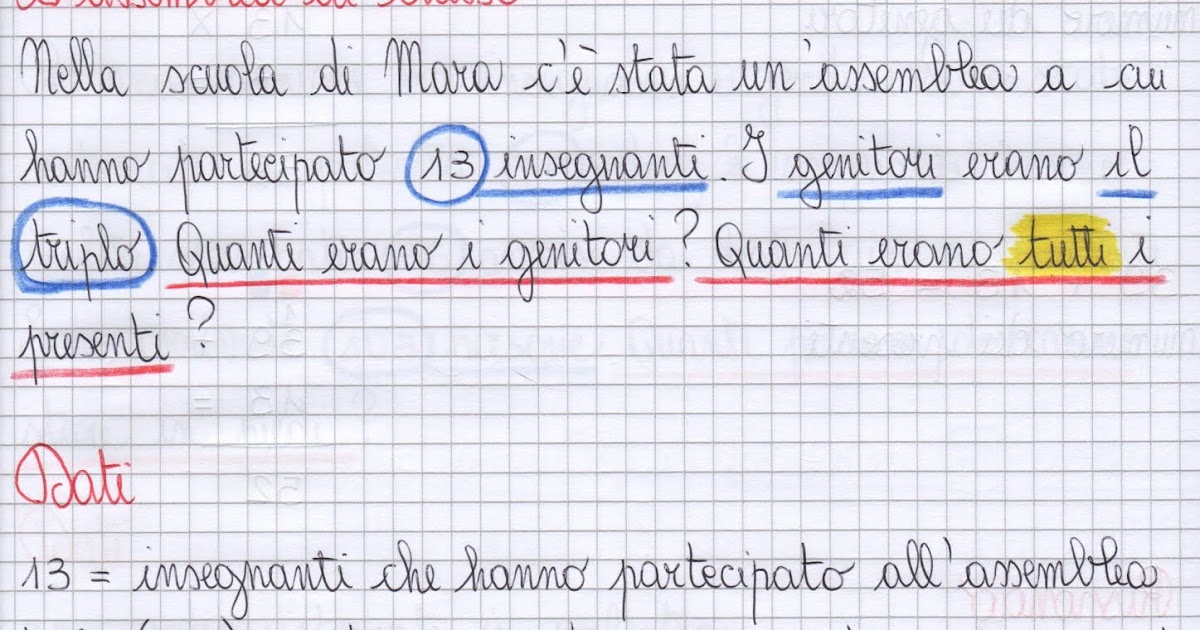 Nella scuola di Mara c'è stata un'assemblea a cui
hanno partecipato 13 insegnanti. I genitori erano il
triplo Quanti erano i genitori? Quanti erano tutti i
presenti?
Dati
13 = insegnanti che hanno partecipato all'assemblea